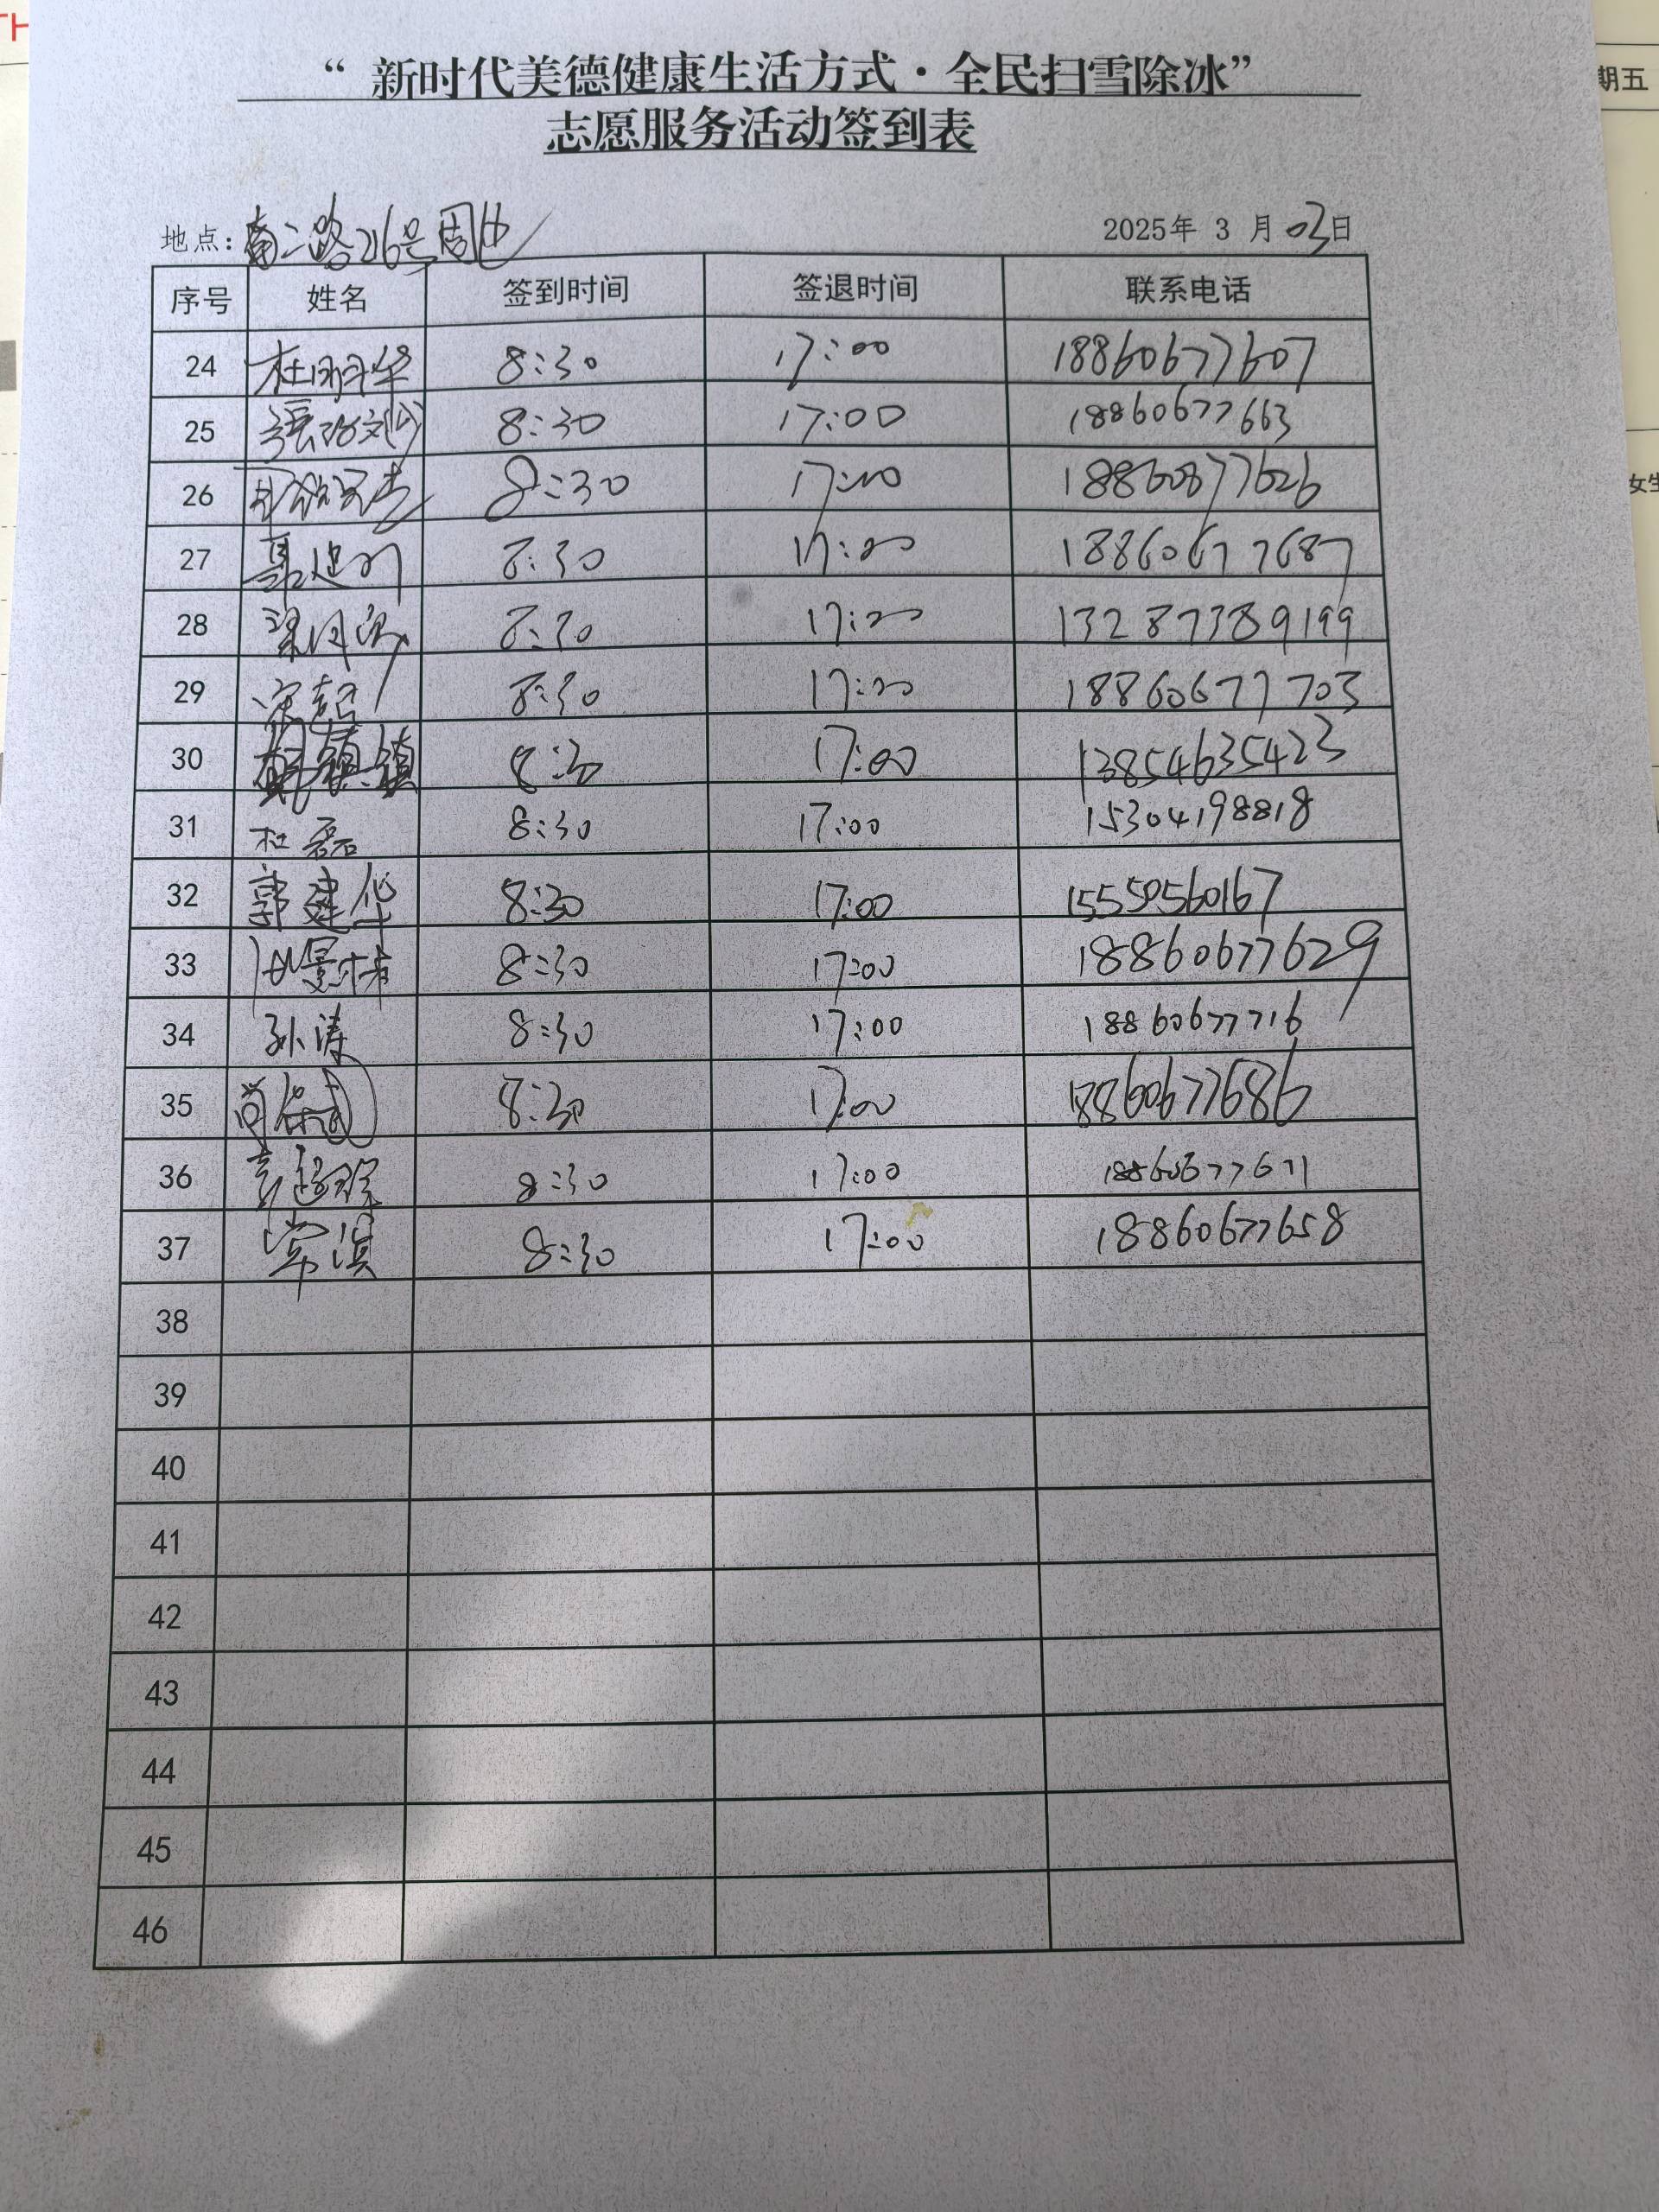 期五
女生
“ 新时代美德健康生活方式·全民扫雪除冰”
志愿服务活动签到表
地点: 南二路216号周边
2025年 3 月 03日
序号 姓名 签到时间 签退时间 联系电话
24 杜羽华 8:30 17:00 18860677607
25 8:30 17:00 18860677663
26 8:30 17:00
27 8:30 17:00 18860677687
28 8:30 17:00 13287389199
29 宋超 8:30 17:00 18860677703
30 8:30 17:00 13854635423
31 杜磊 8:30 17:00 15304198818
32 郭建华 8:30 17:00 15550560167
33 8:30 17:00 18860677629
34 孙涛 8:30 17:00 18860677716
35 8:30 17:00 18860677686
36 8:30 17:00 18860677611
37 常淇 8:30 17:00 18860677658
38
39
40
41
42
43
44
45
46